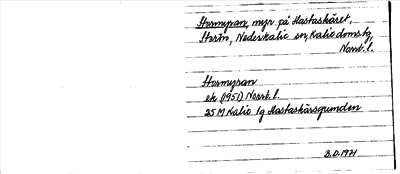 Stormyran, myr på Hastaskäret,
Storön, Nederkalix sn, Kalix doms.tg,
Norrb. l.
Stormyran
ek (1951) Norrb. l.
25 M Kalix lg Hastaskärsgrunden
3.D.1971